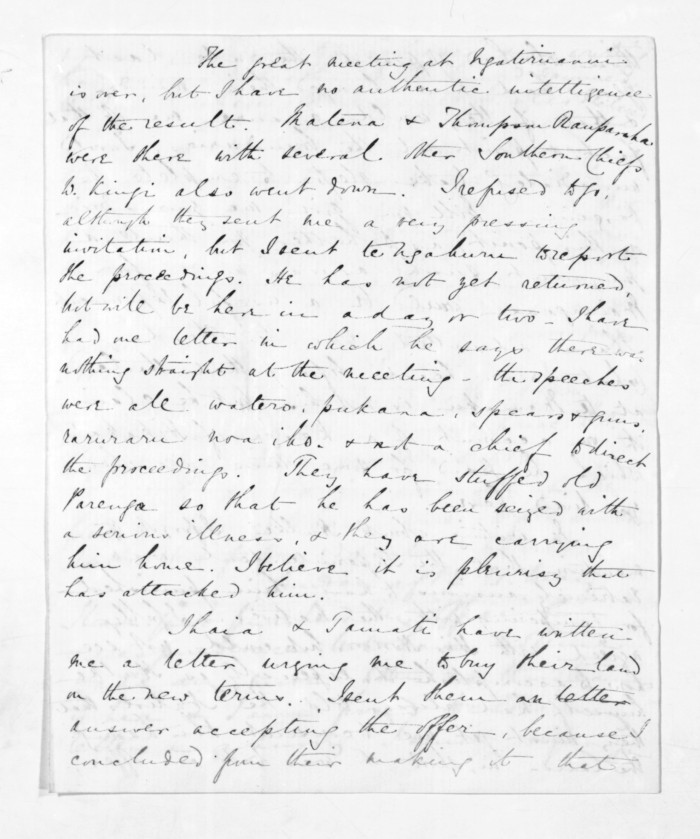 The great meeting at Ngatiruanui
is over, but I have no authentic intelligence
of the result. Matena & Thompson Rauparaha
were there with several other Southern Chiefs
W. Kingi also went down. I refused to go,
although they sent me a very pressing
invitation, but I sent te Ngahuru to report
the proceedings. He has not yet returned,
but will be here in a day or two - I have
had one letter in which he says there was
nothing straight at the meeting - the speeches
were all watero, pukana, spears & guns,
raruraru noa iho. & not a chief to direct
the proceedings. They have stuffed old
Parenga so that he has been seized with
a serious illness, & they are carrying
him home. I believe it is pleurisy that
has attacked him.
Ihaia & Tamati have written
me a letter urging me to buy their land
on the new terms. I sent them an letter
answer accepting the offer, because I
concluded from their making it that